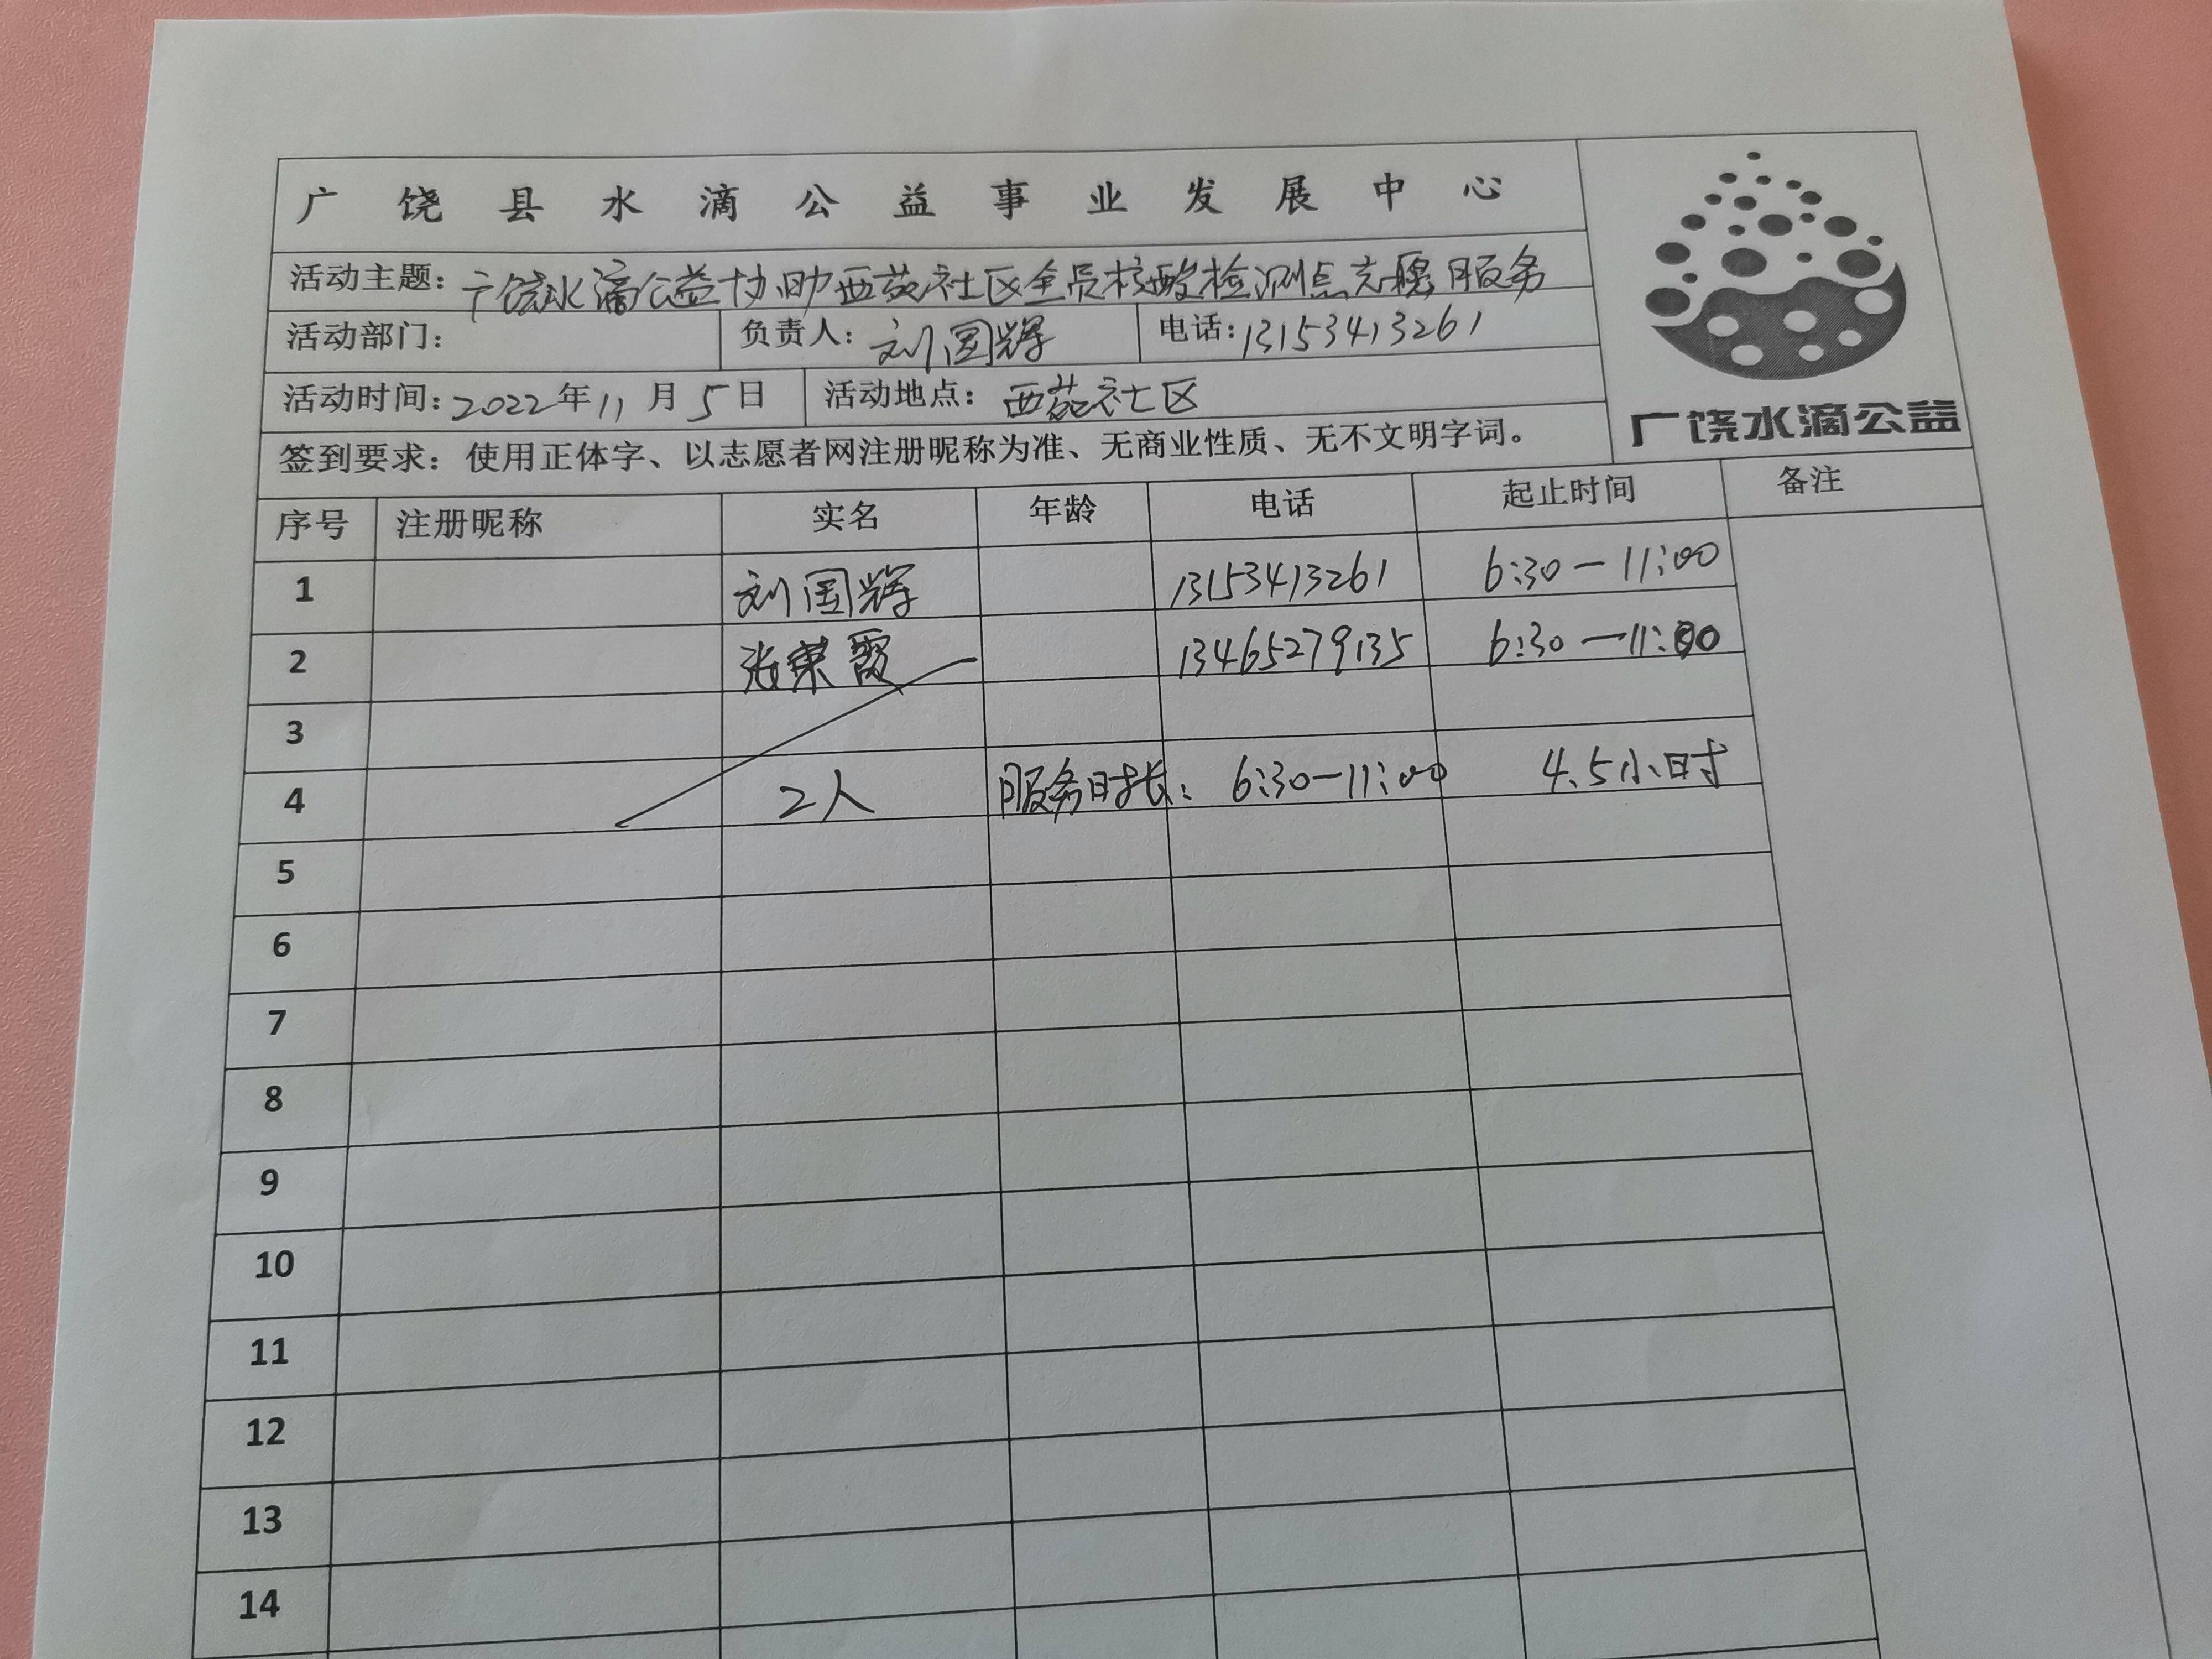 广饶县水滴公益事业发展中心
活动主题：广饶水滴公益协助西苑社区全员核酸检测点志愿服务
活动部门： 负责人：刘国辉 电话：13153413261
活动时间：2022年11月5日 活动地点：西苑社区
广饶水滴公益
签到要求：使用正体字、以志愿者网注册昵称为准、无商业性质、无不文明字词。
序号 注册昵称 实名 年龄 电话 起止时间 备注
1 刘国辉 13153413261 6:30—11:00
2 张荣霞 13465279135 6:30—11:00
3
4 2人 服务时长：6:30—11:00 4.5小时
5
6
7
8
9
10
11
12
13
14